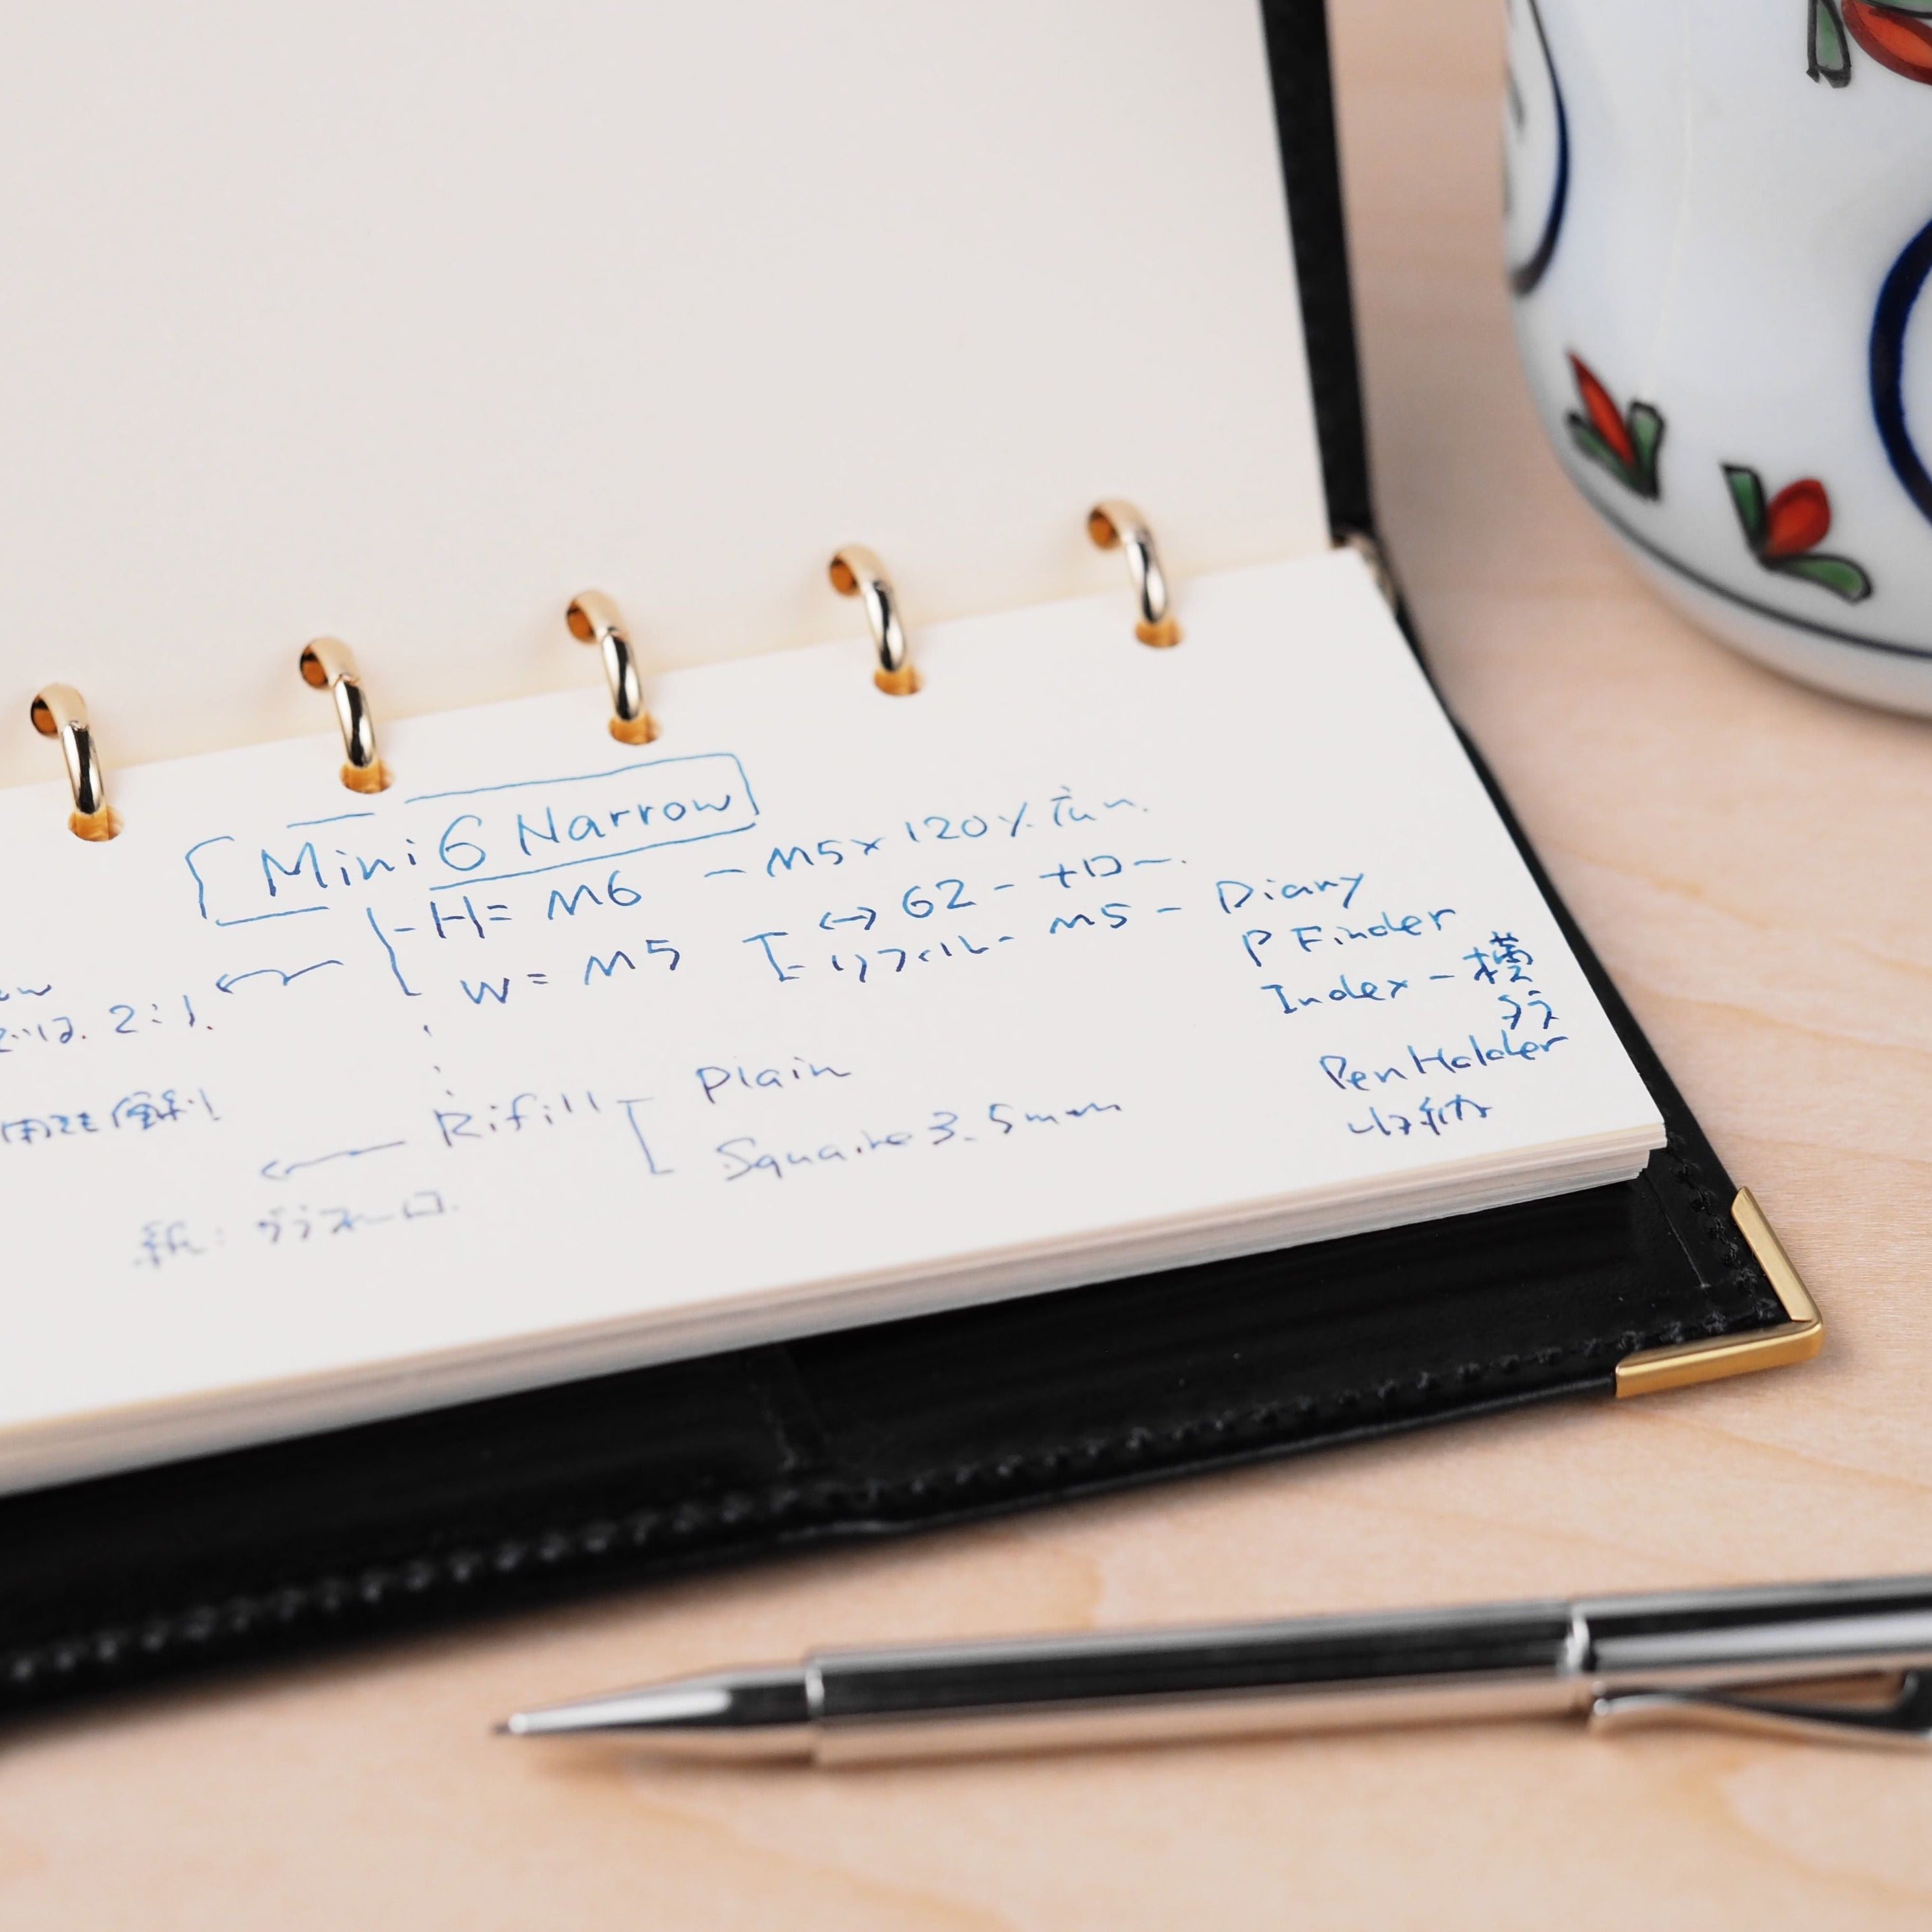 Mini 6 Narrow
H = M6 - M5 x 120%
W = M5 ↔ 62 - ナロー.
リフィル - M5 - Diary
P Finder
Index - 横
PenHolder
収納
2:1.
Rifill Plain
Square 3.5mm
紙: グラフィーロ.